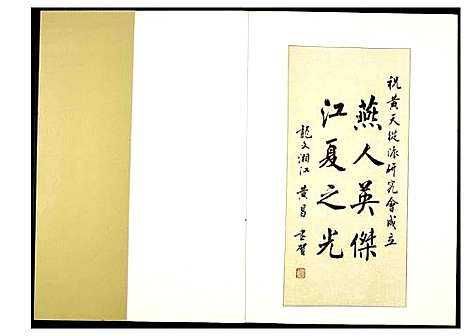 祝黄天從派研究會成立
燕人英傑
江夏之光
龍文湘江 黄昌 敬賀